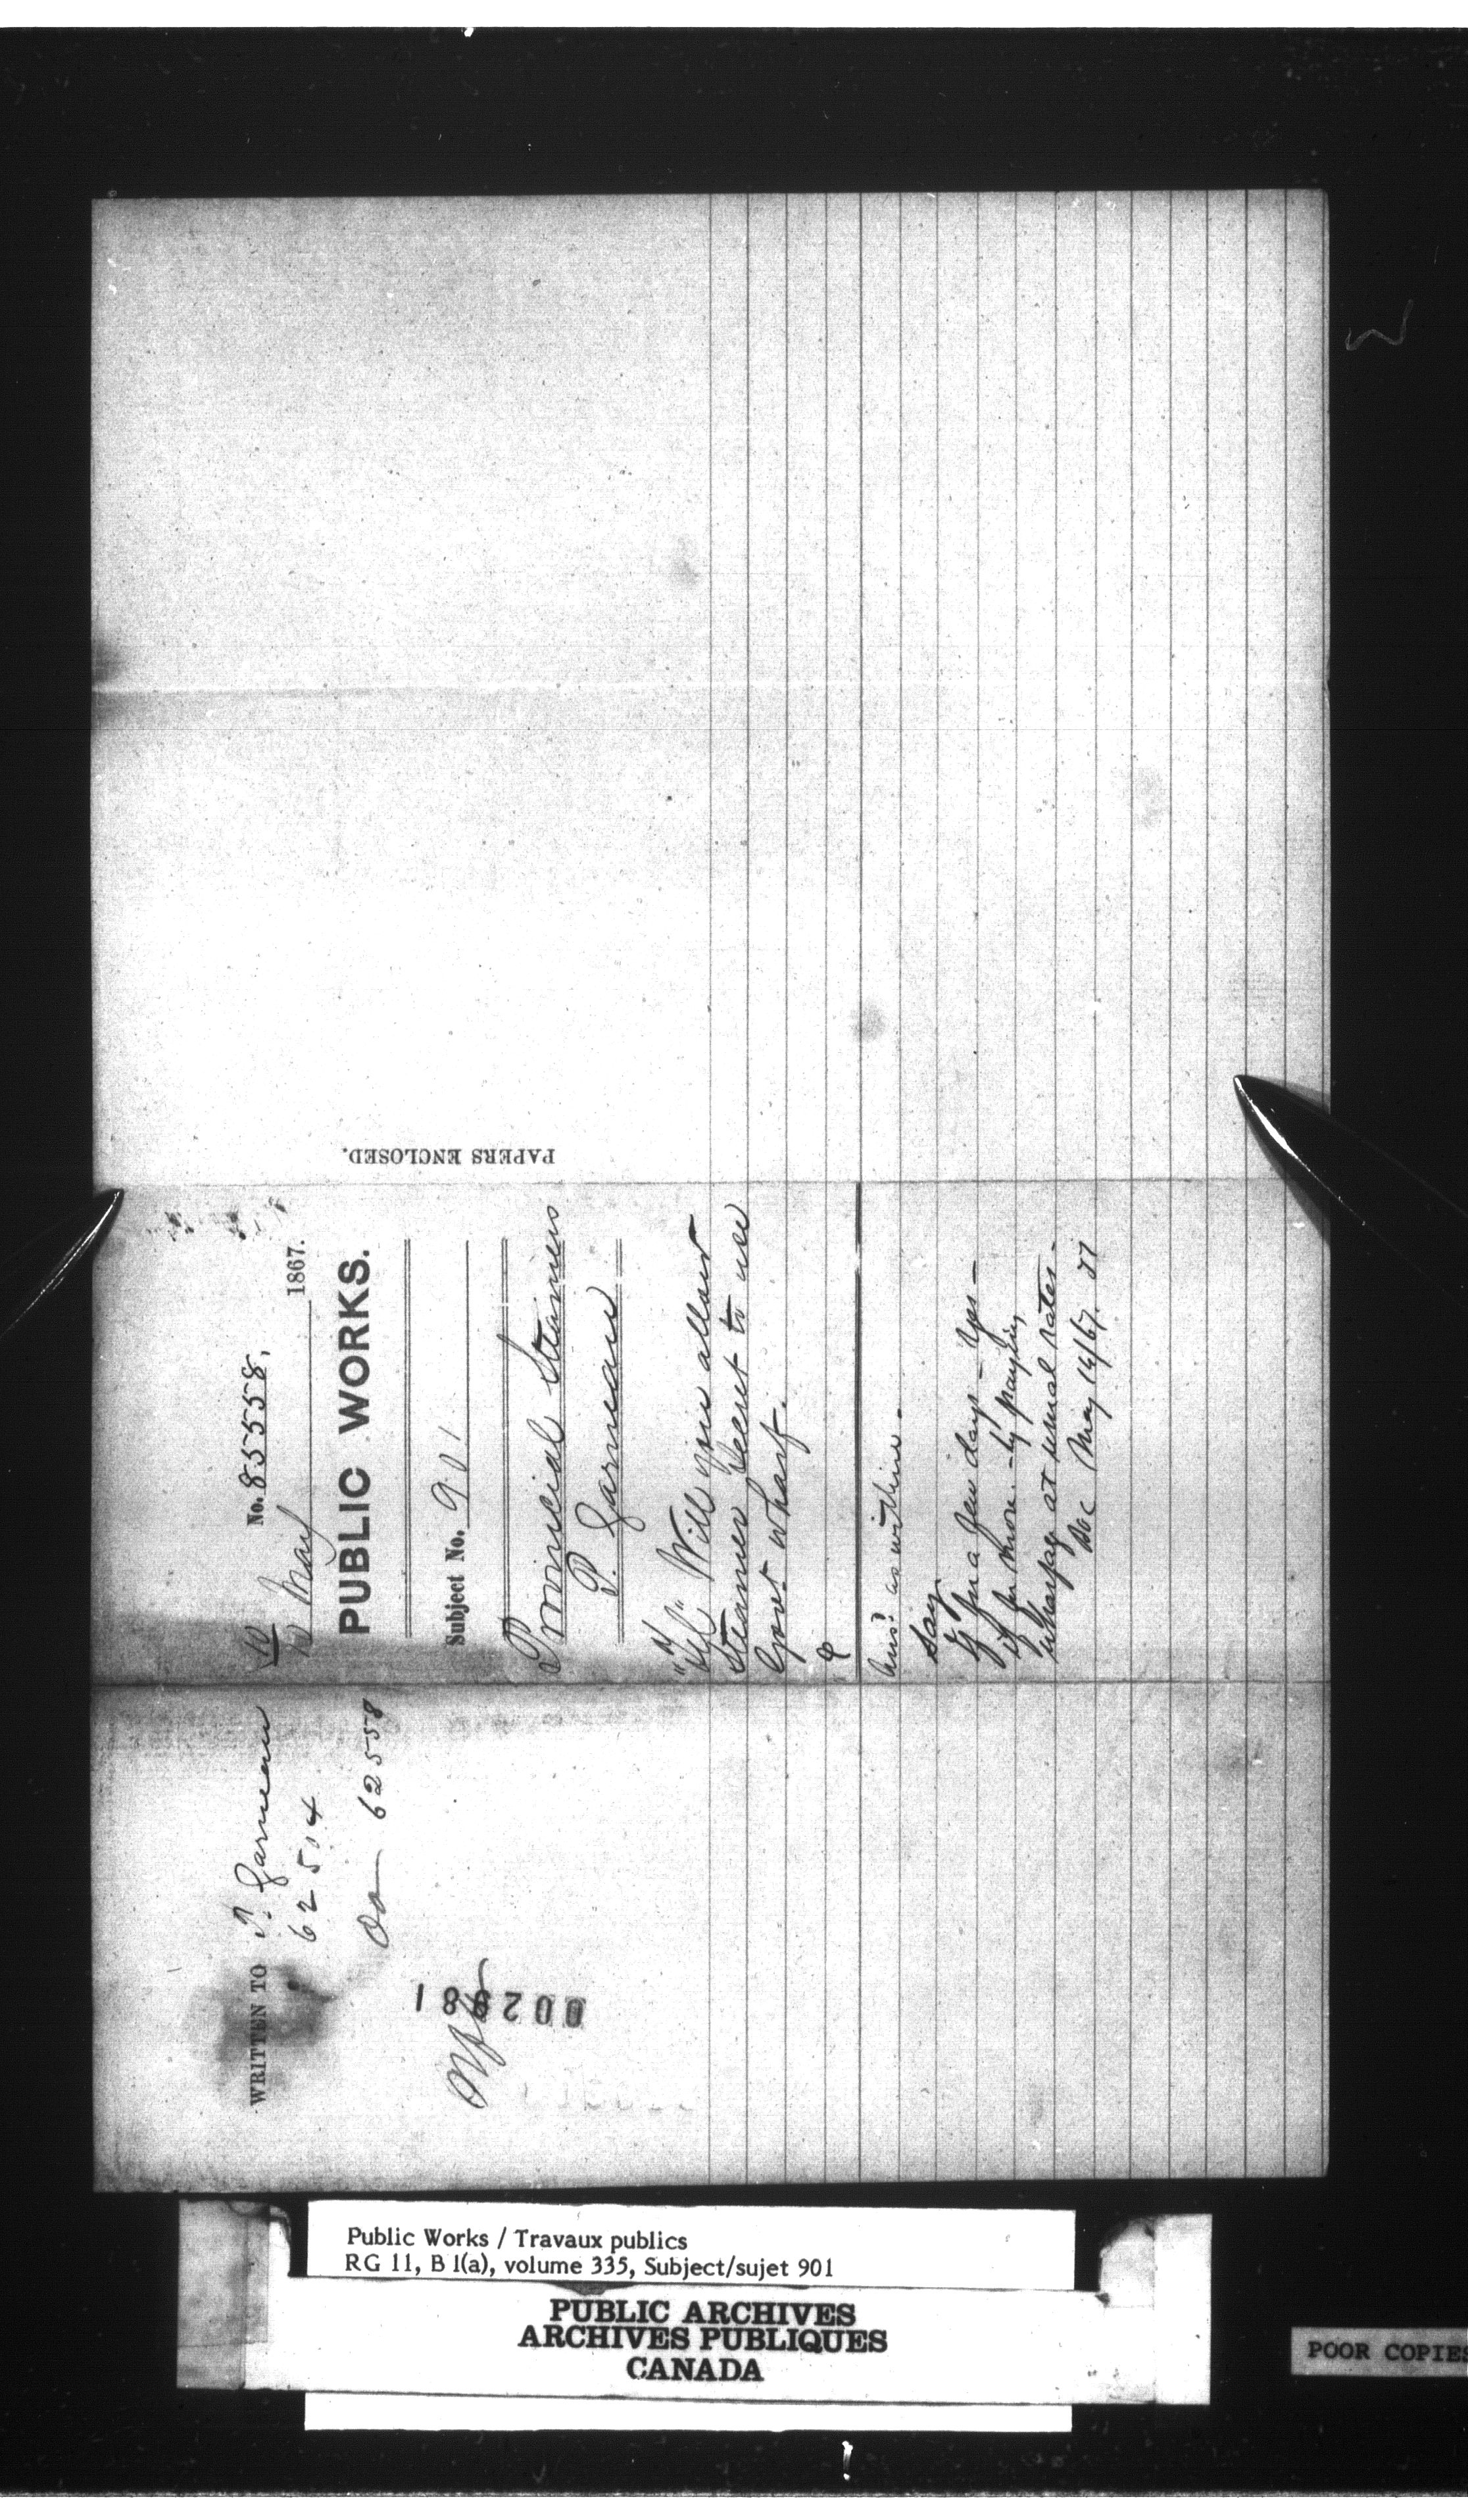 WRITTEN TO P. Garneau
62504
Do 62558
002981
No. 85558.
10 May 1867.
PUBLIC WORKS.
Subject No. 901
Provincial Steamers
P. Garneau
"Tel" Will you allow
Steamer Secret to use
Govt wharf.
Ansd as within.
Say
If for a few days - Yes -
if for more. - by paying
wharfage at usual rates -
May 14/67.
PAPERS ENCLOSED.
Public Works / Travaux publics
RG 11, B 1(a), volume 335, Subject/sujet 901
PUBLIC ARCHIVES
ARCHIVES PUBLIQUES
CANADA
POOR COPIES